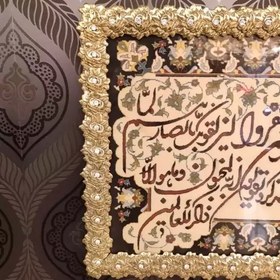 فروا ليزلقونك بابصارهم لما
ويقولون انه لمجنون وما هو الا
ذكر للعالمين